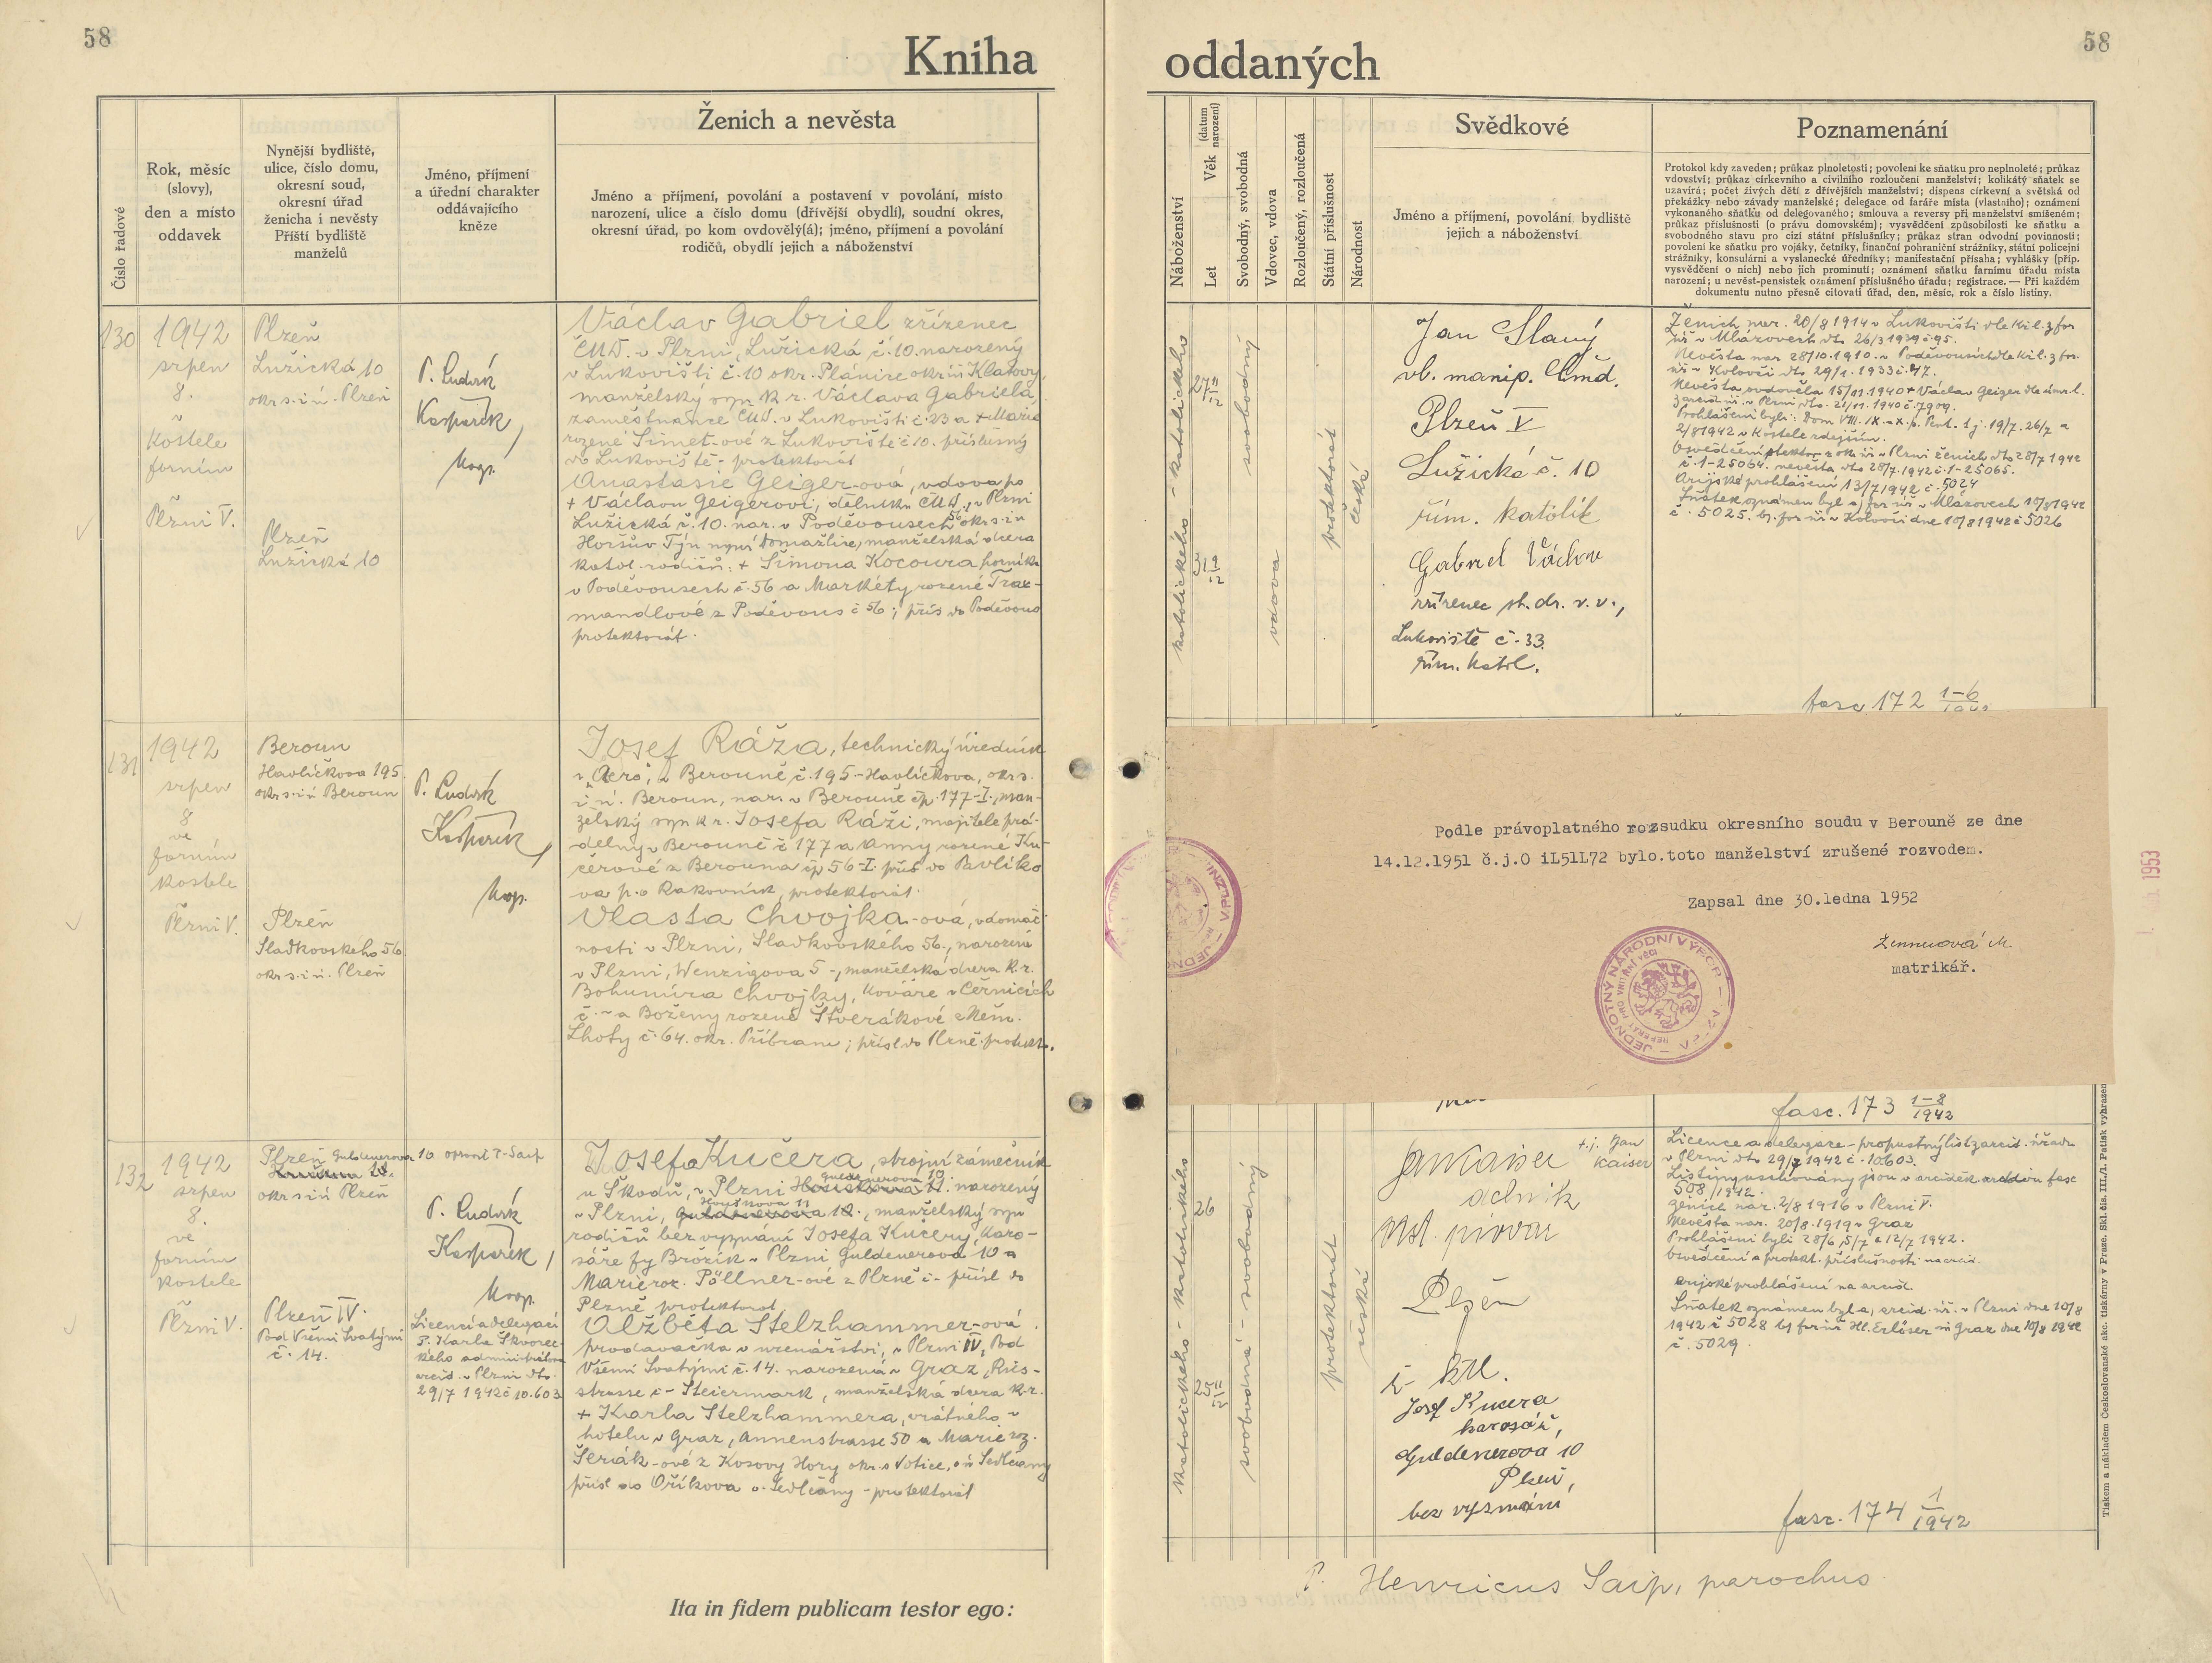 58
Kniha
Ženich a nevěsta
Číslo řadové
Rok, měsíc
(slovy),
den a místo
oddavek
Nynější bydliště,
ulice, číslo domu,
okresní soud,
okresní úřad
ženicha i nevěsty
Příští bydliště
manželů
Jméno, příjmení
a úřední charakter
oddávajícího
kněze
Jméno a příjmení, povolání a postavení v povolání, místo
narození, ulice a číslo domu (dřívější obydlí), soudní okres,
okresní úřad, po kom ovdověly(á); jméno, příjmení a povolání
rodičů, obydlí jejich a náboženství
130
1942
srpen
8.
v
kostele
farním
Plzni V.
Plzeň
Lužická 10
okr s. i ú. Plzeň
Plzeň
Lužická 10
P. Ludvík
Kašparek,
koop.
Václav Gabriel zřízenec
ČMD. v Plzni, Lužická č. 10. narozený
v Lukovišti č. 10 okr. Plánice okr úř Klatovy,
manželský syn k r. Václava Gabriela,
zaměstnance ČMD. v Lukovišti č. 23 a + Marie
rozené Šimet-ové z Lukoviště č 10. příslušný
do Lukoviště - protektorát
Anastasie Geiger-ová, vdova po
+ Václavu Geigerovi, dělníku ČMD., v Plzni
Lužická č. 10. nar. v Poděvousech 56 okr s. i ú
Horšův Týn nyní Domažlice, manželská dcera
katol. rodičů: + Šimona Kocoura, horníka
v Poděvousech č. 56 a Markéty rozené Trax-
mandlové z Poděvous č 56; přís do Poděvous
protektorát.
131
1942
srpen
8
ve
farním
kostele
Plzni V.
Beroun
Havlíčkova 195
okr s. i ú Beroun
Plzeň
Sladkovského 56
okr s. i ú. Plzeň
P. Ludvík
Kašparek,
koop.
Josef Ráža, technický úředník
v „Aero", v Berouně č. 195 - Havlíčkova, okr s.
i ú. Beroun, nar. v Berouně čp. 177-I., man-
želský syn k r. Josefa Ráži, majitele prá-
delny v Berouně č 177 a Anny rozené Ku-
čerové z Berouna čp 56-I. přís do Pavlíko
va p. o Rakovník, protektorát.
Vlasta Chvojka-ová, v domác-
nosti v Plzni, Sladkovského 56., narozená
v Plzni, Wenzigova 5 -, manželská dcera k. r.
Bohumíra Chvojky, kováře v Černicích
č. - a Boženy rozené Štverákové z Něm.
Lhoty č. 64. okr. Příbram; přísl do Plzně. protekt.
132
1942
srpen
8.
ve
farním
kostele
Plzni V.
Plzeň Guldenerova 10 opravil P. Saip
okr s. i ú Plzeň
Plzeň IV.
Pod Všemi Svatými
č. 14.
P. Ludvík
Kašparek,
koop.
Licencí a delegací
P. Karla Škvorec-
kého administrátora
arcid. v Plzni dto
29/7 1942 č 10.603
Josef Kučera, strojní zámečník
u Škodů, v Plzni Guldenerova 10 narozený
v Plzni, Houškova 11, manželský syn
rodičů bez vyznání Josefa Kučery, karo-
sáře fy Brožík v Plzni Guldenerova 10 a
Marie roz. Pöllner-ové z Plzně č - přísl do
Plzně protektorat
Alžběta Stelzhammer-ová
prodavačka v uzenářství, v Plzni IV, Pod
Všemi Svatými č. 14. narozená v Graz, Ries-
strasse č - Steiermark, manželská dcera k. r.
+ Karla Stelzhammera, vrátného v
hotelu v Graz, Annenstrasse 50 a Marie roz.
Šeriák-ové z Kosovy Hory okr. s Votice, o ú Sedlčany
přísl do Oříkova o. Sedlčany - protektorát
Ita in fidem publicam testor ego:
58
oddaných
Náboženství
Věk (datum narození)
Let
Svobodný, svobodná
Vdovec, vdova
Rozloučený, rozloučená
Státní příslušnost
Národnost
Svědkové
Jméno a příjmení, povolání bydliště
jejich a náboženství
Poznamenání
Protokol kdy zaveden; průkaz plnoletosti; povolení ke sňatku pro neplnoleté; průkaz
vdovství; průkaz církevního a civilního rozloučení manželství; kolikátý sňatek se
uzavírá; počet živých dětí z dřívějších manželství; dispens církevní a světská od
překážky nebo závady manželské; delegace od faráře místa (vlastního); oznámení
vykonaného sňatku od delegovaného; smlouva a reversy při manželství smíšeném;
průkaz příslušnosti (o právu domovském); vysvědčení způsobilosti ke sňatku a
svobodného stavu pro cizí státní příslušníky; průkaz stran odvodní povinnosti;
povolení ke sňatku pro vojáky, četníky, finanční pohraniční strážníky, státní policejní
strážníky, konsulární a vyslanecké úředníky; manifestační přísaha; vyhlášky (příp.
vysvědčení o nich) nebo jich prominutí; oznámení sňatku farnímu úřadu místa
narození; u nevěst-pensistek oznámení příslušného úřadu; registrace. — Při každém
dokumentu nutno přesně citovati úřad, den, měsíc, rok a číslo listiny.
katolického - katolického
27 11/12
31 9/12
svobodný
vdova
protektorát
česká
Jan Slaný
vl. manip. Čmd.
Plzeň V
Lužická č. 10
řím. katolík
Gabriel Václav
zřízenec st. dr. v. v.,
Lukoviště č. 33.
řím. katol.
Ženich nar. 20/8 1914 v Lukovišti dle kř. l. z far
úř v Mlázovech dto 26/3 1939 č. 95.
Nevěsta nar 28/10. 1910. v Poděvousích dle kř l. z far.
úř v Koloveči dto 29/1. 1933 č. 47.
Nevěsta ovdověla 15/11 1940 + Václav Geiger dle úmr l.
z arcid. úř. v Plzni, dto. 21/11. 1940 č. 7909.
Prohlášeni byli: Dom VIII. IX. a X. p. Pent. t j. 19/7. 26/7 a
2/8 1942 v kostele zdejším.
Osvědčení protektor z ok. úř v Plzni ženich dto 28/7 1942
č. 1-25064. nevěsta dto 28/7. 1942 č. 1-25065.
Arijské prohlášení 13/7 1942 č. 5024
Sňatek oznámen byl a) far úř v Mlázovech 10/8 1942
č. 5025. b) far úř v Koloveči dne 10/8 1942 č 5026
fasc 172 1-6
Podle právoplatného rozsudku okresního soudu v Berouně ze dne
14.12.1951 č.j.O iL51L72 bylo.toto manželství zrušené rozvodem.
Zapsal dne 30.ledna 1952
matrikář.
JEDNOTNÝ NÁRODNÍ VÝBOR
REFERÁT PRO VNITŘNÍ VĚCI
1953
fasc. 173 1-8/1942
katolického - katolického
26
25 11/12
svobodná - svobodný
protektorát
česká
Jan Kaiser
t. j. Jan
Kaiser
dělník
Měst. pivovar
Plzeň
ř. ktl.
Josef Kucera
karosář,
Guldenerova 10
Plzeň,
bez vyznání
Licence a delegace - propustný list z arcid. úřadu
v Plzni dto 29/7 1942 č. 10.603.
Listiny uschovány jsou v arciděk. archivu fasc
508/1942.
Ženich nar. 2/8 1916 v Plzni V.
Nevěsta nar. 20/8. 1919 v Graz
Prohlášeni byli 28/6, 5/7 a 12/7 1942.
Osvědčení a protekt. příslušnosti na arcid.
arijské prohlášení na arcid.
Sňatek oznámen byl a, arcid. úř. v Plzni dne 10/8
1942 č 5028 b) far úř Hl. Erlöser in Graz dne 10/8 1942
č. 5029.
fasc. 174 1/1942
Tiskem a nákladem Československé akc. tiskárny v Praze. Skl. čís. III./1. Patisk vyhrazen
P. Henricus Saip, parochus